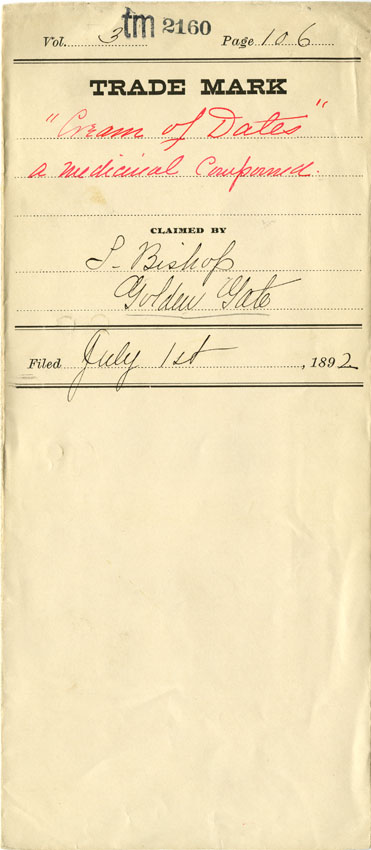 tm 2160
Vol. 3 Page 106
TRADE MARK
"Cream of Dates"
a medicinal Compound.
CLAIMED BY
S. Bishop
Golden Gate
Filed July 1st, 1892